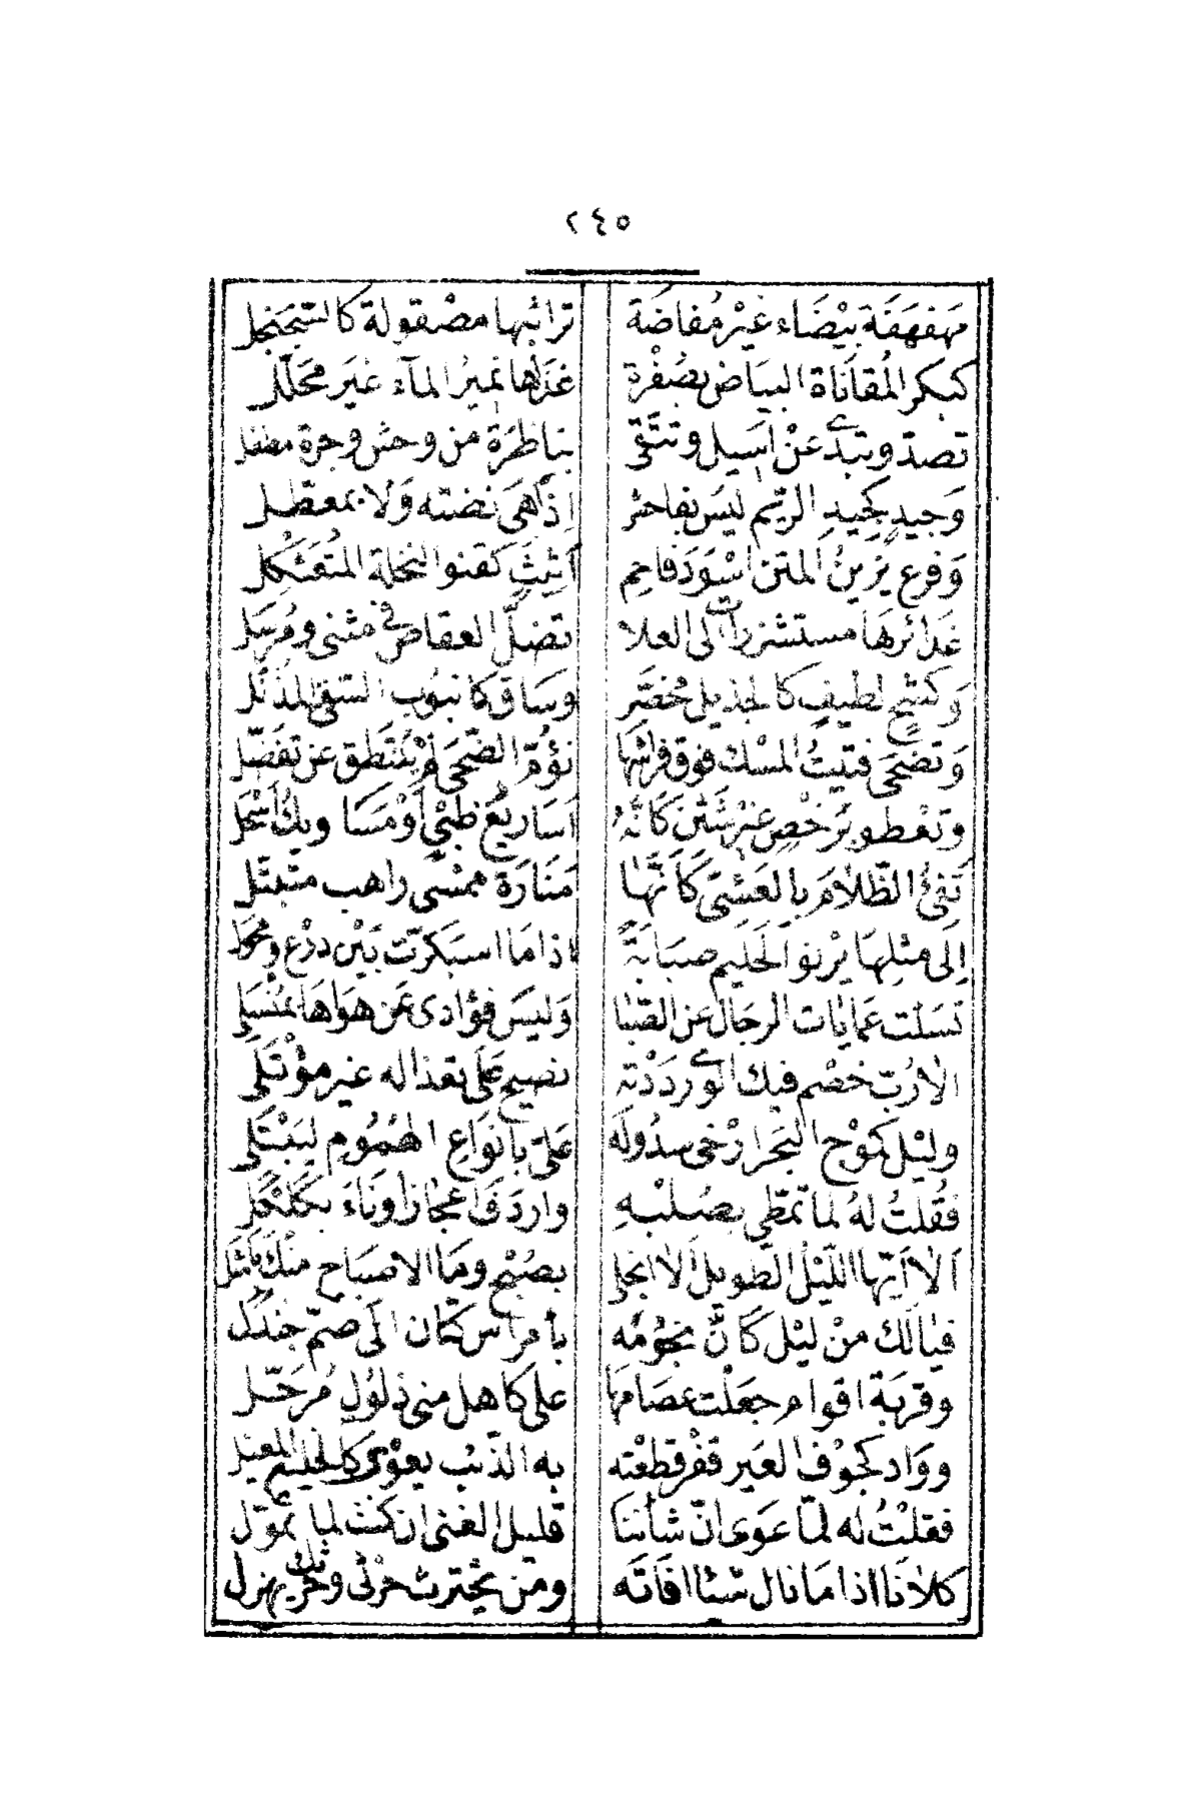 ٢٤٥
مَهَفهَفَة بَيْضَاء غَيْرُ مُفاضَة ترائبها مصْقولة كالسَّجَنجل
كبكر المُقاَناة البيَاض بصُفْرة غذاها نميرُ المآء غيَر محَلّل
تصدّ وتبدى عَنْ اَسيل وتتَّقى بناظرَة من وحش وجرة مطفل
وَجيدٍ كجيدِ الرّيم ليسَ بفاحش اِذَا هَى نضته وَلا بمعطّل
وَفرعٍ يزينُ المتن اسْوَدَ فاحم اَثيثٍ كقنو النخلة المتُعَثكل
غدائرهَا مستشزرات الى العلا تضلّ العقاص فى مثنى ومُرسَل
وَكشحٍ لطيفٍ كالجذيل مُخصّر وسَاق كانبوب السّقىّ المذلّل
وَتضحَى فتيتُ المسْك فوق فراشها نؤُمَ الضّحَى لم تنْتَطق عن تفضّل
وتعْطو برَخْصٍ غيْر شَثْن كَانَّهُ اَسَاريعُ ظبْيٍ اَوْ مَسَاويكُ اَسْحَل
تَضئُ الظّلاَمَ بالعَشىّ كَاَنَّهَا مَنَارَة ممْسَى راهب متبتّل
اِلَى مثْلِهَا يرْنو الحَليم صبَابَةً اذا ما اسبَكَرّت بَيْن درْع ومجْوَل
تسَلّت عَمايَات الرجَال عن الصّبا وَليسَ فؤادى عَن هَوَاهَا بمُنْسَلى
الاَ رُبّ خصْم فيك الوى رَدَدْته نصيح عَلى تعذاله غير مؤْتَلَى
وليْل كمَوْج البَحر ارْخى سدُولَه عَلىّ باَنوَاعِ الهُمُومِ ليَبْتَلى
فقُلتُ لهُ لما تمَطّى بصُلْبهِ واردَفَ اعجازا وَنَاءَ بكَلْكَل
اَلاَ اَيّها اللّيْل الطّويل اَلا انجَلى بصُبْح ومَا الاصبَاح منْكَ باَمثَل
فيَا لَكَ منْ ليْل كَاَنَّ نجُوْمَه بأمراس كتّان الَى صمّ جَندَل
وقربَة اقوام جعَلْت عصَامهَا على كاهل منى ذلوُلٍ مُرَحّل
ووَاد كجَوْف العَير قفْر قطعْته به الذّئب يعوْى كالخليع المعيَل
فقلْتُ له لمّا عَوَى انّ شأننا قليل الغنى ان كنت لما تموّل
كلاَنَا اذا مَا نال شئا افَاتَه ومَن يحْترث حَرْثى وحَرثك يهزل